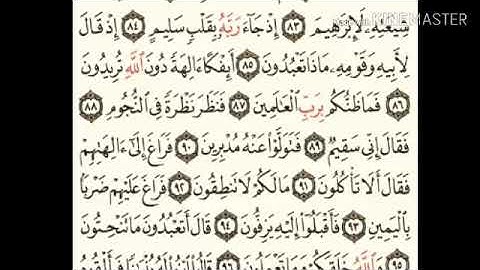 KINEMASTER
شِيعَتِهِۦ لَإِبْرَٰهِيمَ ٨٣ إِذْ جَآءَ رَبَّهُۥ بِقَلْبٍ سَلِيمٍ ٨٤ إِذْ قَالَ
لِأَبِيهِ وَقَوْمِهِۦ مَاذَا تَعْبُدُونَ ٨٥ أَئِفْكًا ءَالِهَةً دُونَ ٱللَّهِ تُرِيدُونَ
٨٦ فَمَا ظَنُّكُم بِرَبِّ ٱلْعَٰلَمِينَ ٨٧ فَنَظَرَ نَظْرَةً فِى ٱلنُّجُومِ ٨٨
فَقَالَ إِنِّى سَقِيمٌ ٨٩ فَتَوَلَّوْا۟ عَنْهُ مُدْبِرِينَ ٩٠ فَرَاغَ إِلَىٰٓ ءَالِهَتِهِمْ
فَقَالَ أَلَا تَأْكُلُونَ ٩١ مَا لَكُمْ لَا تَنطِقُونَ ٩٢ فَرَاغَ عَلَيْهِمْ ضَرْبًۢا
بِٱلْيَمِينِ ٩٣ فَأَقْبَلُوٓا۟ إِلَيْهِ يَزِفُّونَ ٩٤ قَالَ أَتَعْبُدُونَ مَا تَنْحِتُونَ
٩٥ وَٱللَّهُ خَلَقَكُمْ وَمَا تَعْمَلُونَ ٩٦ قَالُوا۟ ٱبْنُوا۟ لَهُۥ بُنْيَٰنًا فَأَلْقُوهُ